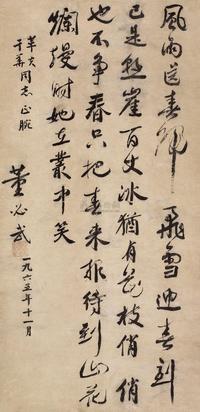 風雨送春歸飛雪迎春到
已是懸崖百丈冰猶有花枝俏俏
也不争春只把春来報待到山花
爛熳时她在叢中笑
同志正腕
董必武
一九六五年十一月